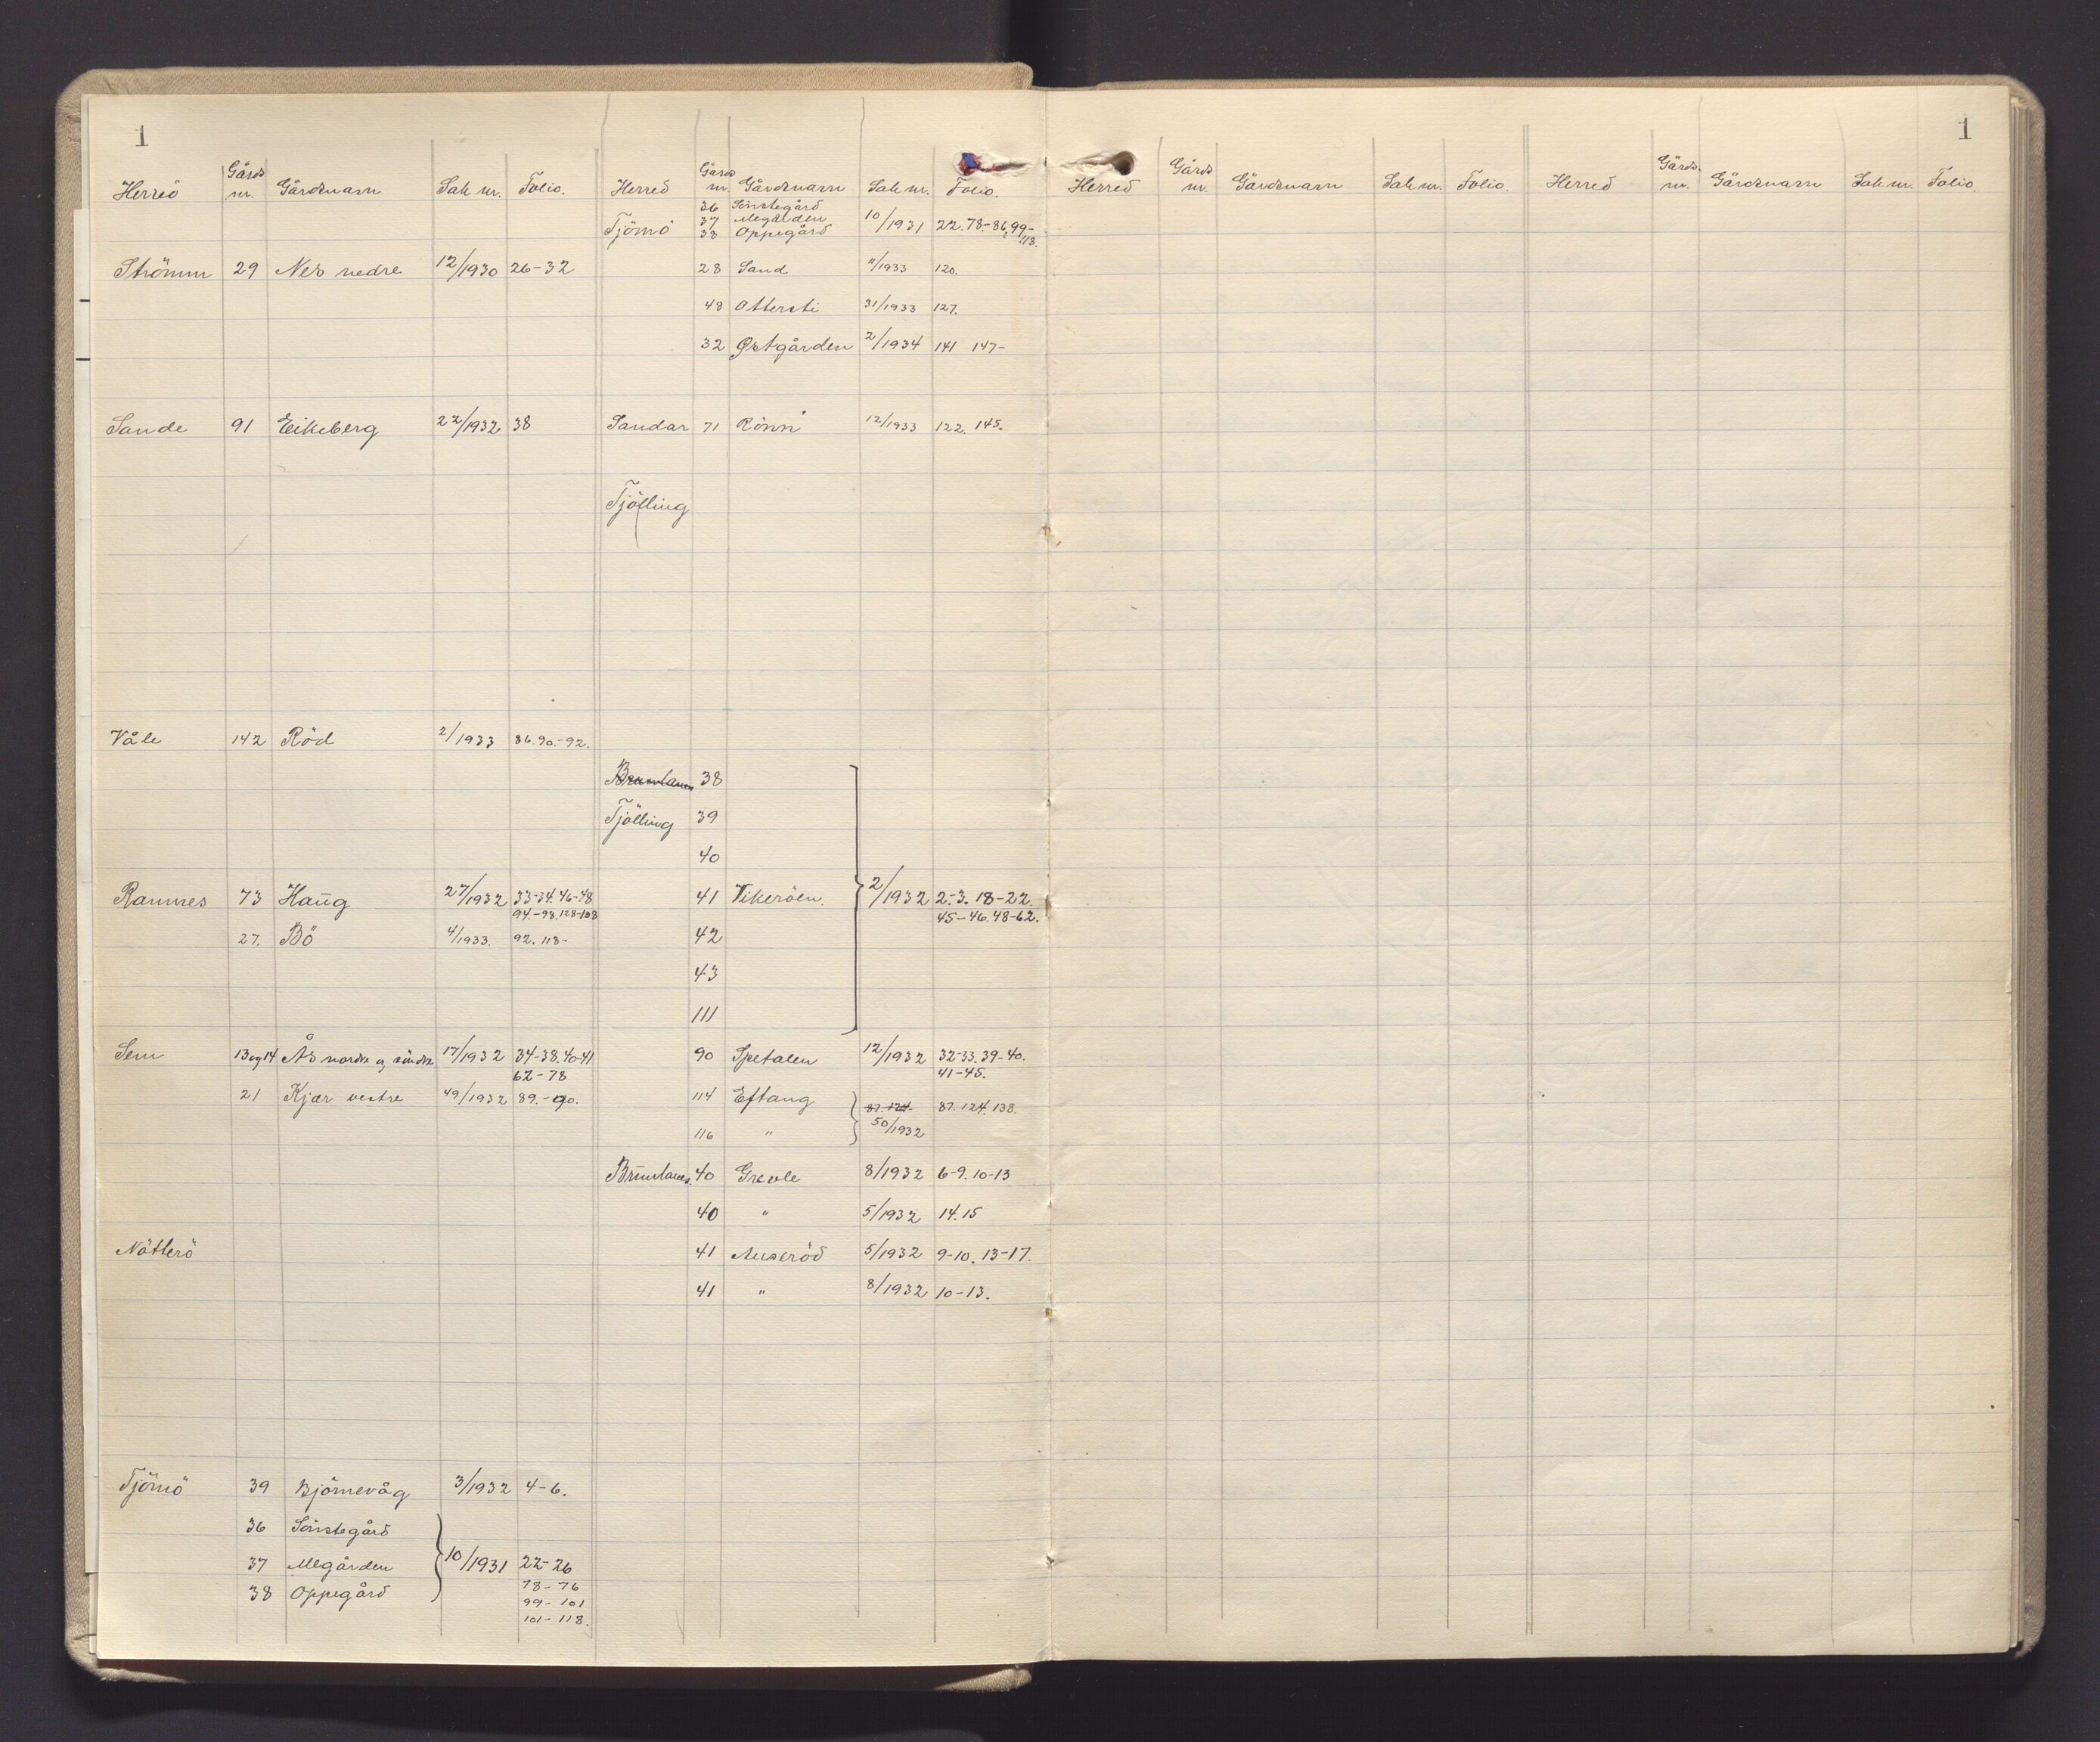 1
Herred Gårds nr. Gårdsnavn Sak nr. Folio.
Strömm 29 Nes nedre 12/1930 26-32
Sande 91 Eikeberg 22/1932 38
Våle 142 Röd 2/1933 86.90.-92.
Ramnes 73 Haug 27/1932 33-34.46-48
94.-98.128-108
27. Bö 4/1933. 92. 118-
Sem 13 og 14 Ås nordre og söndre 17/1932 34-38.40-41
62-78
21 Kjær vestre 49/1932 89.-90.
Nötterö
Tjömö 39 Bjömevåg 3/1932 4-6.
36 Sönstegård
37 Mlgården 10/1931 22-26
78-76
38 Oppegård
99-101
101-118.
Herred Gårds nr. Gårdsnavn Sak nr. Folio.
36 Sönstegård
Tjömö 37 Mlgården 10/1931 22.78.-86,99-
118.
38 Oppegård
28 Sand 11/1933 120.
48 Ottersti 31/1933 127.
32 Østgården 2/1934 141 147-
Sandar 71 Rönn 12/1933 122. 145.
Tjölling
Brunlanes 38
Tjölling 39
40
41 Vikeröen. 2/1932 2.-3. 18-22.
45-46.48-62.
42
43
111
90 Spetalen 12/1932 32-33.39-40.
41-45.
114 Eftang 87.124. 87.124.138.
116 " 50/1932
Brunlanes. 40 Grevle 8/1932 6-9.10-13
40 " 5/1932 14.15
41 Auseröd 5/1932 9-10. 13-17.
41 " 8/1932 10-13.
1
Herred Gårds nr. Gårdsnavn Sak nr. Folio. Herred Gårds. nr. Gårdsnavn Sak nr. Folio.